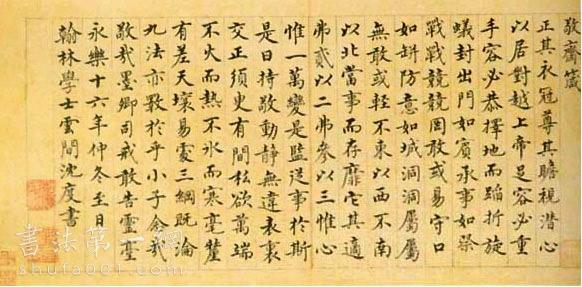 敬齋箴
正其衣冠尊其瞻視潜心
以居對越上帝足容必重
手容必恭擇地而蹈折旋
蟻封出門如賓承事如祭
戰戰兢兢罔敢或易守口
如缾防意如城洞洞屬屬
無敢或輕不東以西不南
以北當事而存靡它其適
弗貳以二弗參以三惟心
惟一萬變是監從事於斯
是曰持敬動静無違表裏
交正須臾有間私欲萬端
不火而熱不氷而寒毫釐
有差天壤易處三綱既淪
九法亦斁於乎小子念哉
敬哉墨卿司戒敢告靈臺
永樂十六年仲冬至日
翰林學士雲間沈度書
書法第一網
shufa001.com